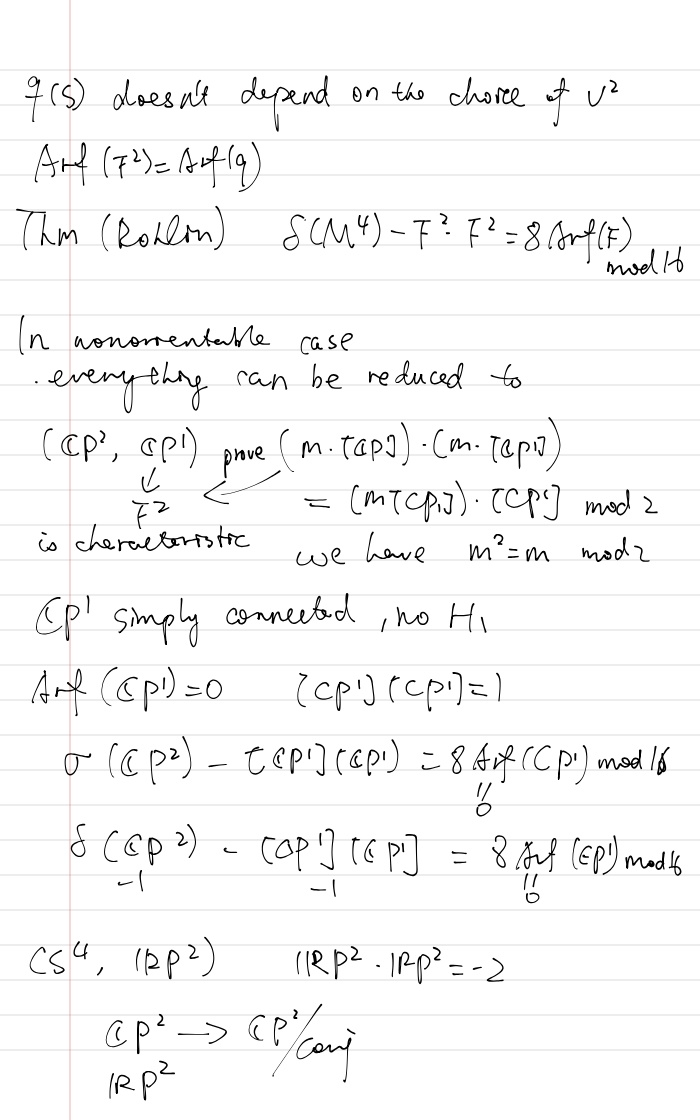 q(S) doesn't depend on the choice of V²
Arf (F²) = Arf(q)
Thm (Rohlin) δ(M⁴) - F²·F² = 8 Arf(F)
mod 16
In nonorientable case
. everything can be reduced to
(ℂP², ℂP¹) prove (m·[ℂP¹])·(m·[ℂP¹])
↓
F² ← = (m[ℂP¹])·[ℂP¹] mod 2
is characteristic we have m²=m mod 2
ℂP¹ simply connected, no H₁
Arf (ℂP¹)=0 [ℂP¹][ℂP¹]=1
σ(ℂP²) - [ℂP¹][ℂP¹] = 8 Arf(ℂP¹) mod 16
0
δ(ℂP²) - [ℂP¹][ℂP¹] = 8 Arf (ℂP¹) mod 16
-1 -1 0
(S⁴, ℝP²) ℝP²·ℝP²=-2
ℂP² → ℂP²/conj
ℝP²